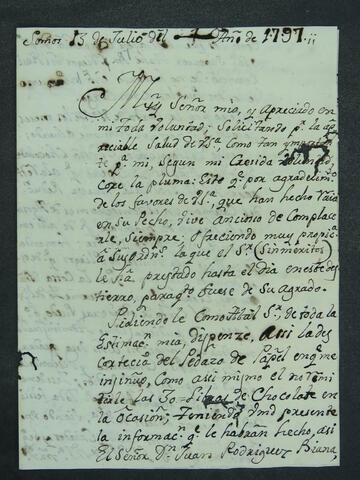 Somos 13 de Julio del Año de 1797.,,
Muy Señor mio, y Apreciado con
mi toda voluntad; Solicitando pª la apre
ciable Salud de Vsª, Como tan ymportante
pª mi, Segun mi Crecida voluntad,
Coge la pluma: Esto qª por agradecim.to
de los favores de Vsª, que han hecho
en Su Pecho, vive Ancioso de Complacer
le, Siempre, Ofreciendo muy propici
a Su la que el Sr (Sin meritos)
le ha prestado hasta el Dia en este des
tierro, para qe fuese de Su agrado.
Pidiendo le Como tal Sr, de toda la
Estimacn mia, dispenze, Assi la des
cortecia del Pedazo de Papel en qe me
, Como assi mismo el no rremi
tiale las 30 de Chocolate en
la Ocasion; Teniendo Vmd presente
la informacn qe le habran hecho, assi
El Señor Dn Juan Rodriguez Biana,